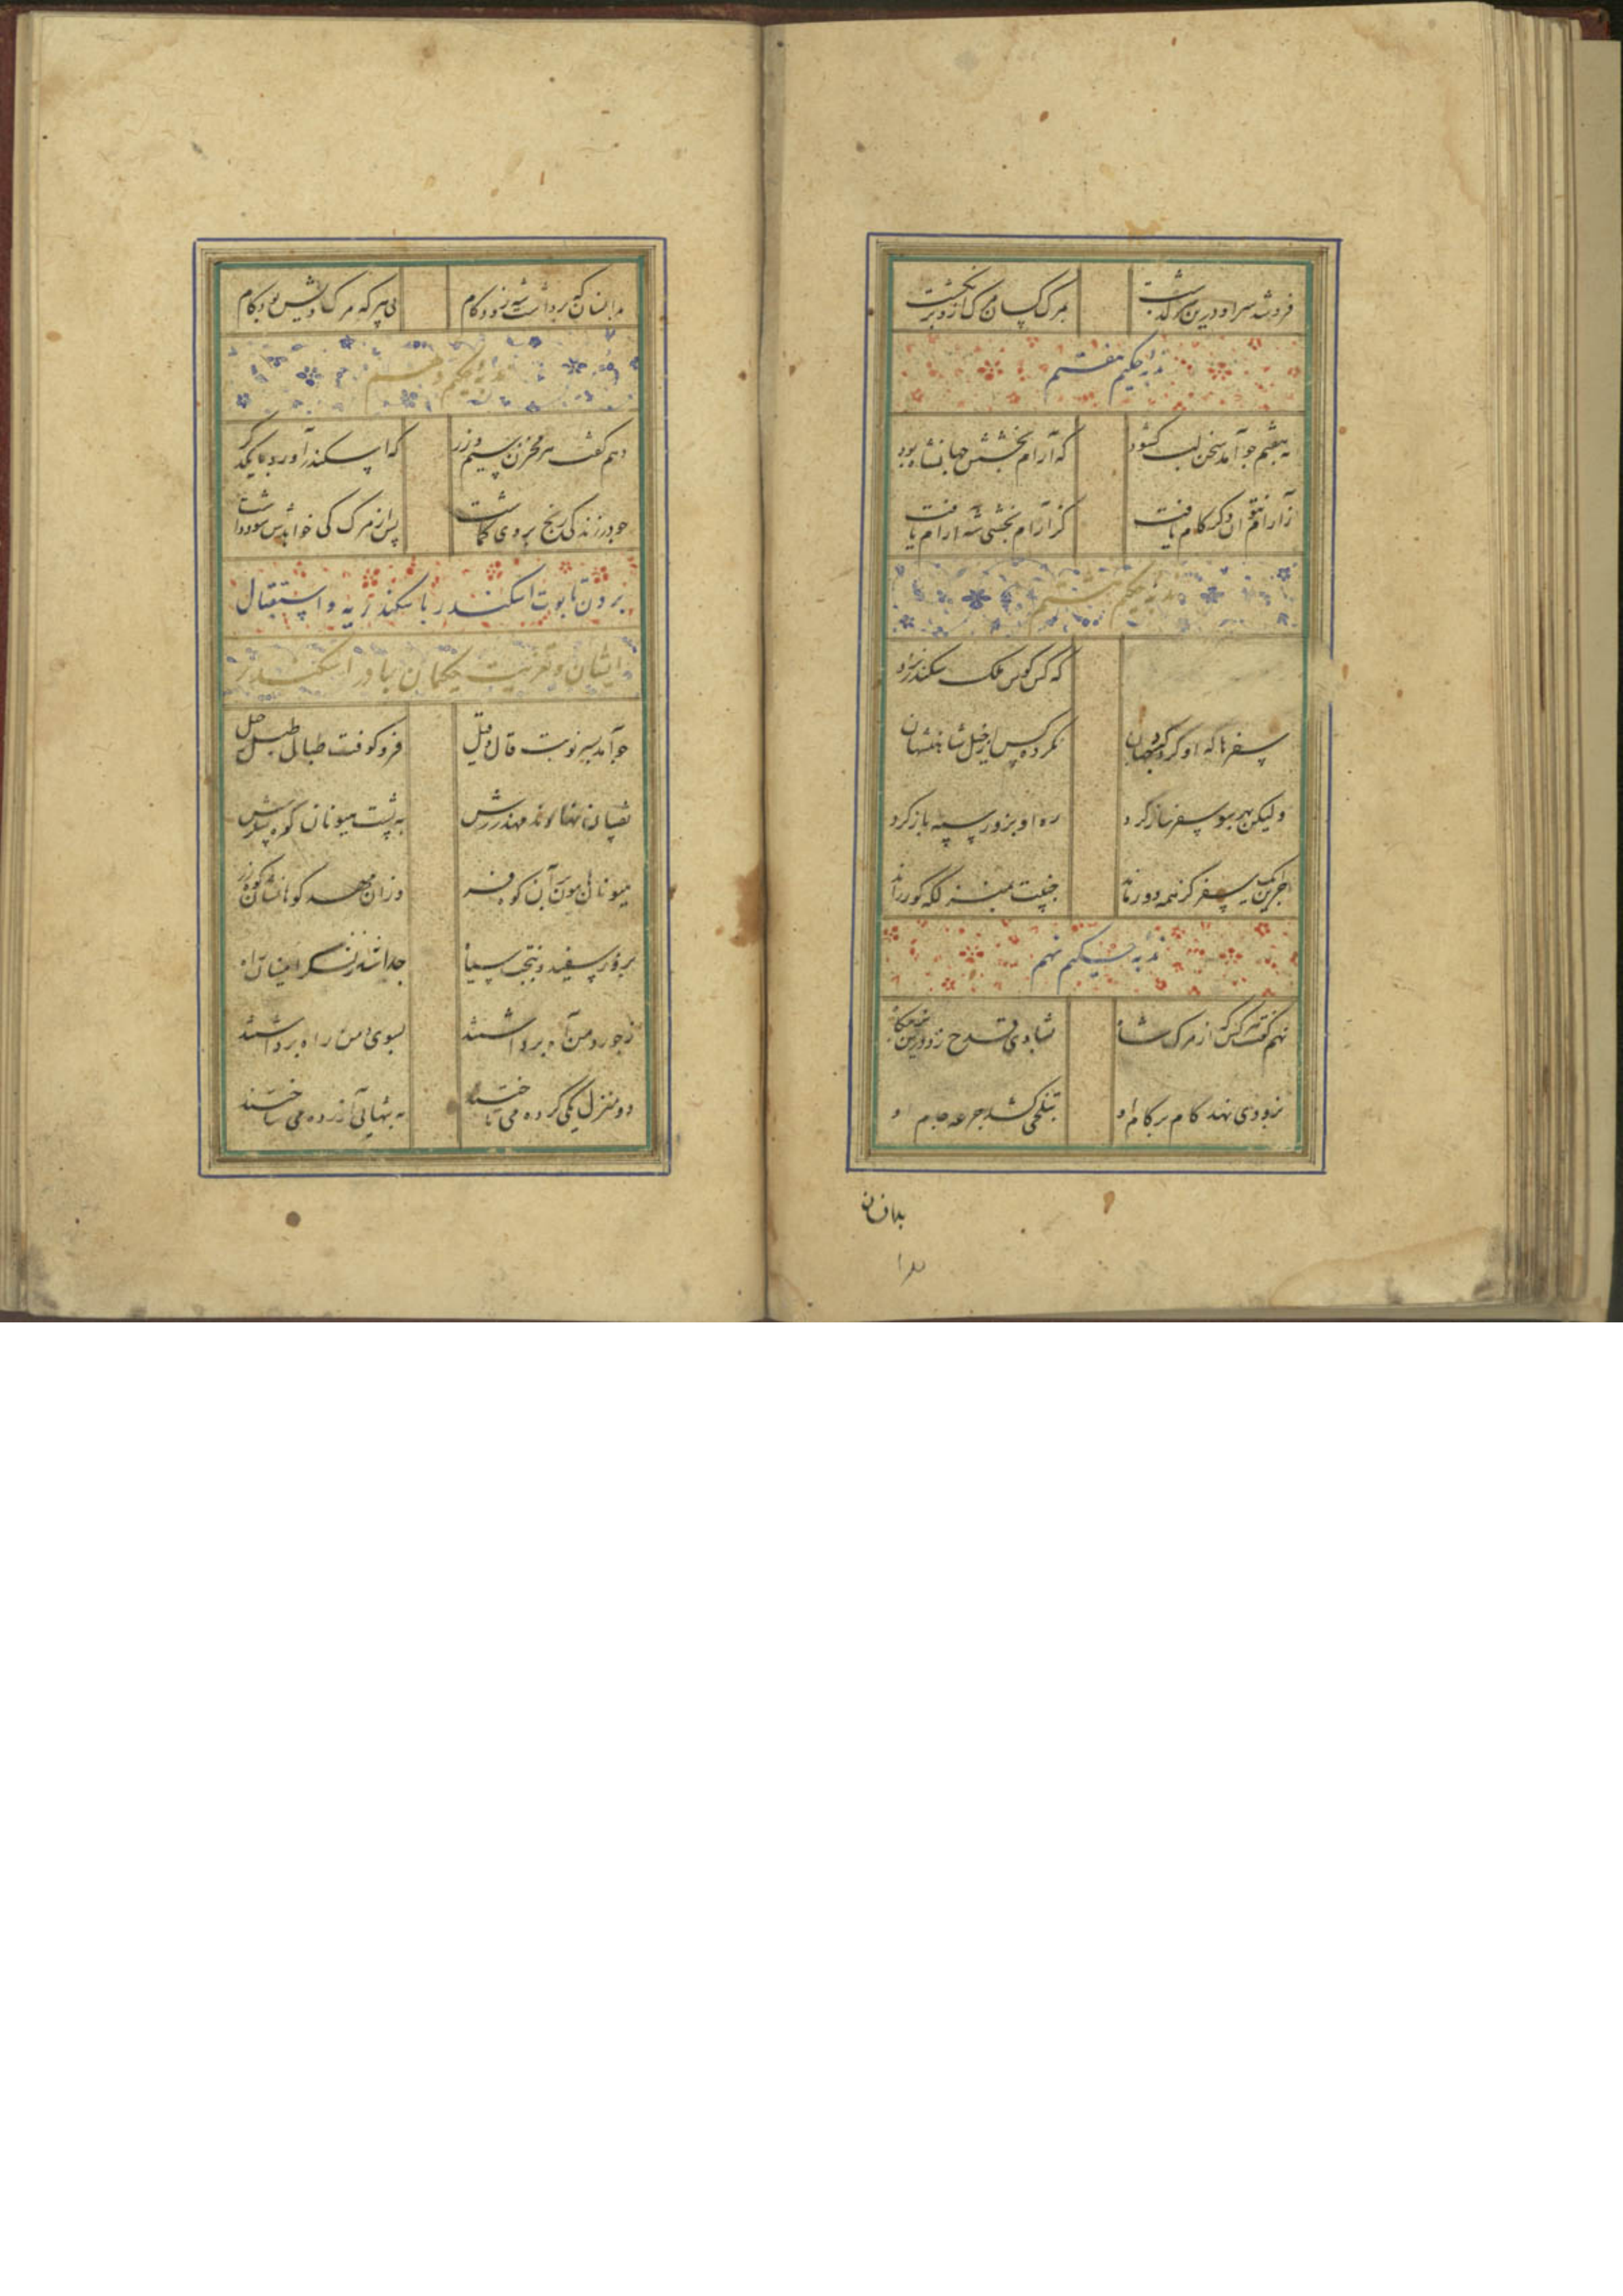 فروشد سراو درین سرگذشت بمرک کسان مرک ازو برنکشت
ندبه حکیم هفتم
به هفتم جو آمد سخن لب کشود که آرام بخشش جهانشاه بود
زآرام نتوان دکر کام یافت کز آرام بخشی شه ارام یافت
ندبه حکیم هشتم
که کس کوس ملک سکندر نزد
سفرها که او کرد کرد جهان نکرده کس از خیل شاهنشهان
ولیکن بهر سو سفر ساز کرد ره او بزور سپه باز کرد
جز این یک سفر کز همه دور ماند
ندبه حکیم نهم
نهم گفت هر کس از مرک شاه شادی قدح زد درین
بزودی نهد کام بر کام او بتلخی کشد جرعه جام او
بدانسان
بدانسان که برداشت شه زود کام بی هر که مرک ویش بود کام
ندبه حکیم دهم
دهم گفت هر مخزن سیم وزر که اسکندر آورد با یکدکر
جو در زندکی رنج بروی کماشت پس از مرک کی خواهدش سود داشت
بردن تابوت اسکندر باسکندریه و استقبال
ایشان و تعزیت حکیمان مادر اسکندر
جو آمد بسر نوبت قال و قیل فرو کوفت طبال طبل رحیل
نهادند مهد زرش به پشت هیونان کوه پیکرش
هیونان هامون بر آن کوه فر وزان مهد کوهانشان کوه زر
بروز سفید و شب سیاه جدا شد ز لشکر
ز جور زمن آه برداشتند بسوی وطن راه برداشتند
دو منزل یکی کرده می تاختند به تنهایی آزرده می ساختند